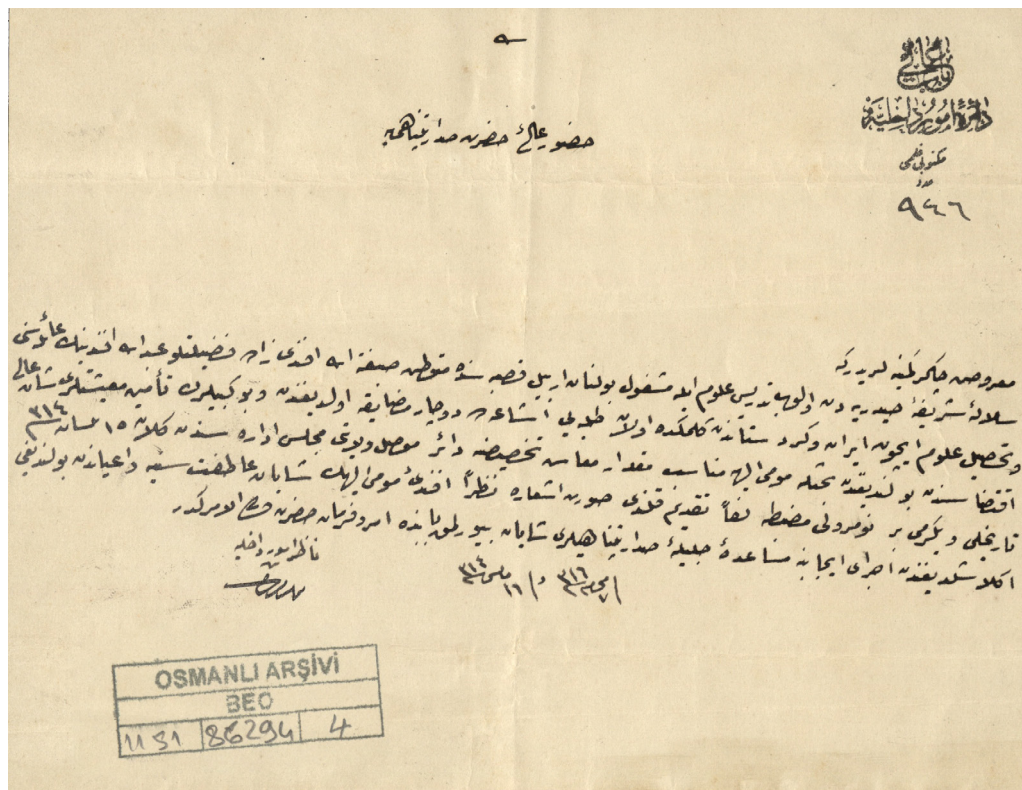 باب عالی
دائرهٔ امور داخلیه
مكتوبی قلمی
عدد
٩٤٦
حضور عالئ حضرت صدارتپناهی‌يه
معروض چاكر كمينه‌لريدركه
سلالهٔ شريفهٔ حيدريه‌دن والیوم تدريس علوم ايله مشغول بولنان اربيل قصبه‌سنده متوطن صبغة الله افندی زاده فضيلتلو عبدالله افندينك عائله‌سی
وتحصيل علوم ايچون ايران وكردستاندن كلمكده اولان طلبه‌يی اعاشه‌ده دوچار مضايقه اولديغندن وبو كبيلرك تأمين معيشتلری شان عالی
اقتضاسندن بولنديغندن بحثله مومی اليه مناسب مقدار معاش تخصيصنه دائر موصل ولايتی مجلس اداره‌سندن كلان ١٥ نيسان ٣١٤
تاريخلی ويكرمی بر نومرولی مضبطه لفاً تقديم قلندی صورت اشعاره نظراً افندئ مومی اليهك شايان عاطفت سنيه داعياندن بولنديغی
اكلاشلديغندن اجرای ايجابنه مساعدهٔ جليلهٔ صدارتپناهيلری شايان بيورلمق بابنده امر وفرمان حضرت ولی الامركدر
فی ٧ محرم ٣١٦ وفی ١٦ مايس ٣١٤
ناظر امور داخليه
OSMANLI ARŞİVİ
BEO
1151 86294 4